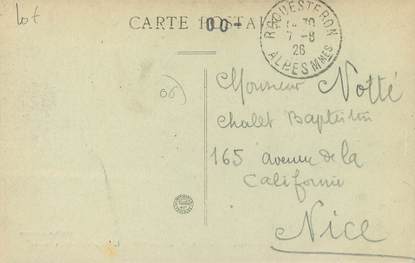 Lot
CARTE POSTALE
00-
ROQUESTERON
7-8
26
ALPES MMES
06
Monsieur Notté
Chalet Baptistin
165 avenue de la
Californie
Nice